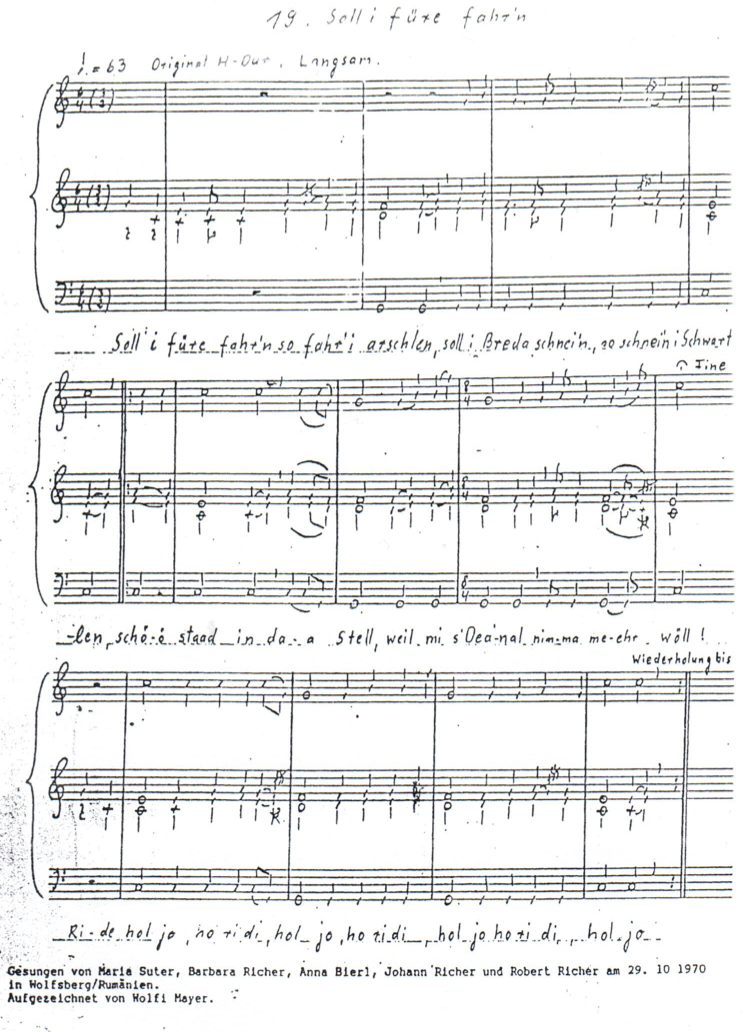 19. Soll i füre fahr'n
♩ = 63 Original H-Dur. Langsam.
6/4 (3/2)
6/4 (3/2)
6/4 (3/2)
Soll i füre fahr'n so fahr' i arschlen, soll i Breda schnein, so schnein i Schwart
Fine
8/4
8/4
8/4
-len, schö-ö staad in da-a Stell, weil mi s'Dea-nal nim-ma me-ehr wöll!
Wiederholung bis
Ri-de hol jo, ho ri di, hol jo, ho ri di hol jo ho ri di, hol jo
Gesungen von Maria Suter, Barbara Richer, Anna Bierl, Johann Richer und Robert Richer am 29. 10 1970
in Wolfsberg/Rumänien.
Aufgezeichnet von Wolfi Mayer.